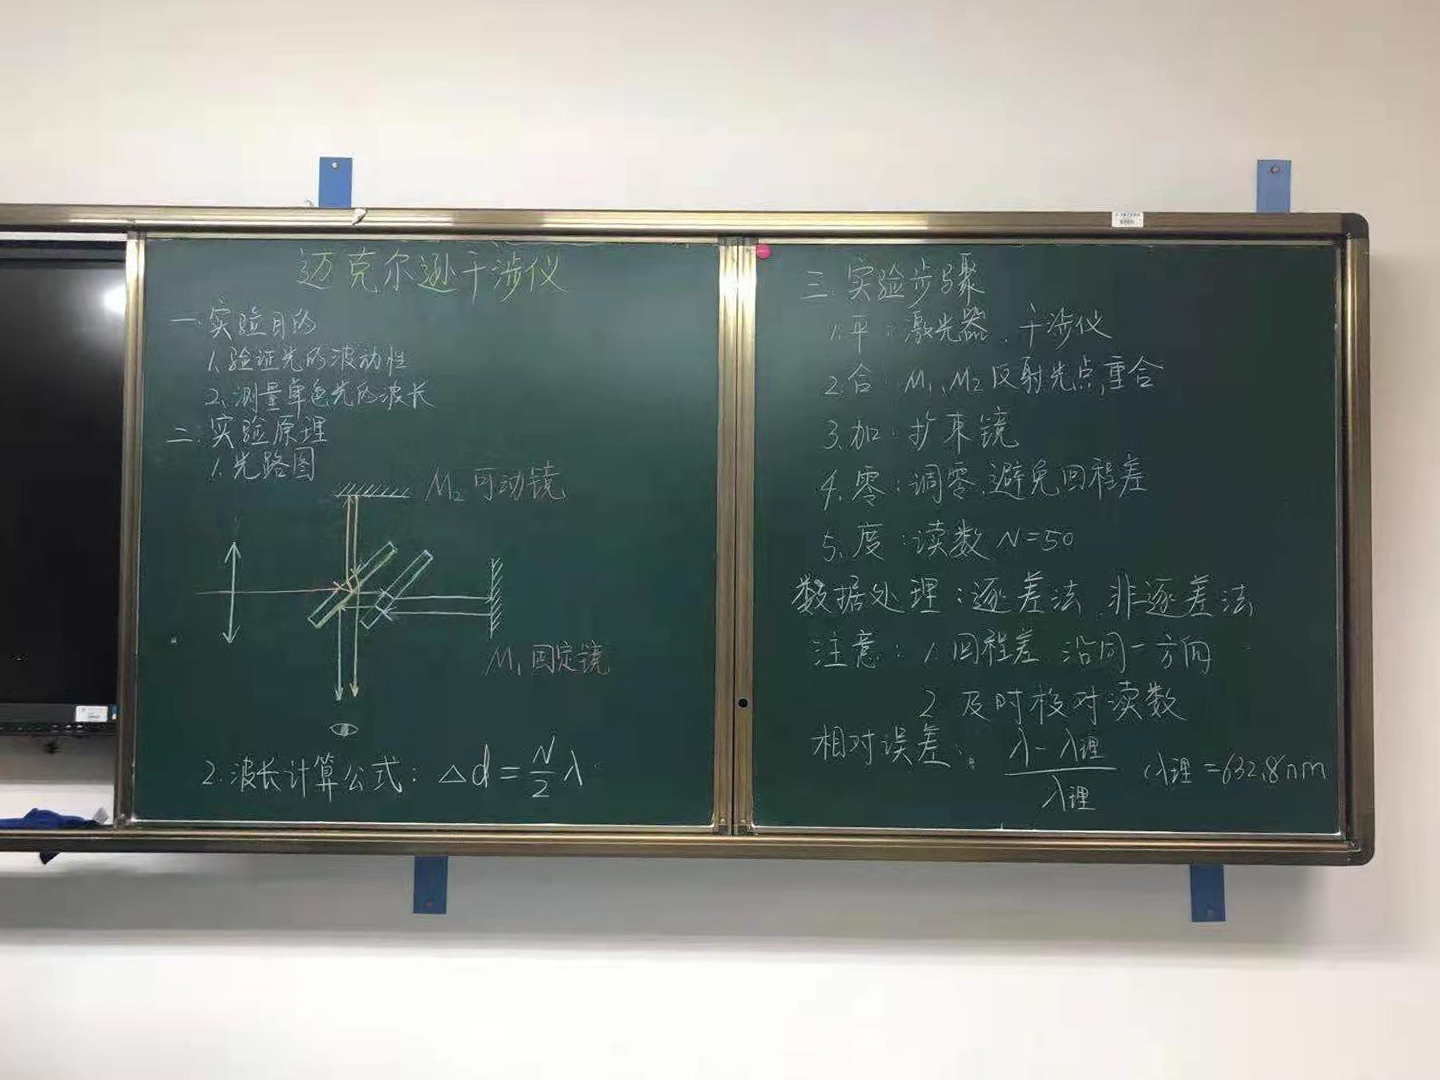 迈克尔逊干涉仪
一.实验目的
1.验证光的波动性
2.测量单色光的波长
二.实验原理
1.光路图
M₂可动镜
M₁固定镜
2.波长计算公式：△d=N/2 λ
三.实验步骤
1.平：激光器、干涉仪
2.合：M₁、M₂反射光点重合
3.加：扩束镜
4.零：调零，避免回程差
5.度：读数 N=50
数据处理：逐差法、非逐差法
注意：1.回程差 沿同一方向
2 及时核对读数
相对误差：(λ-λ理)/λ理 (λ理=632.8nm